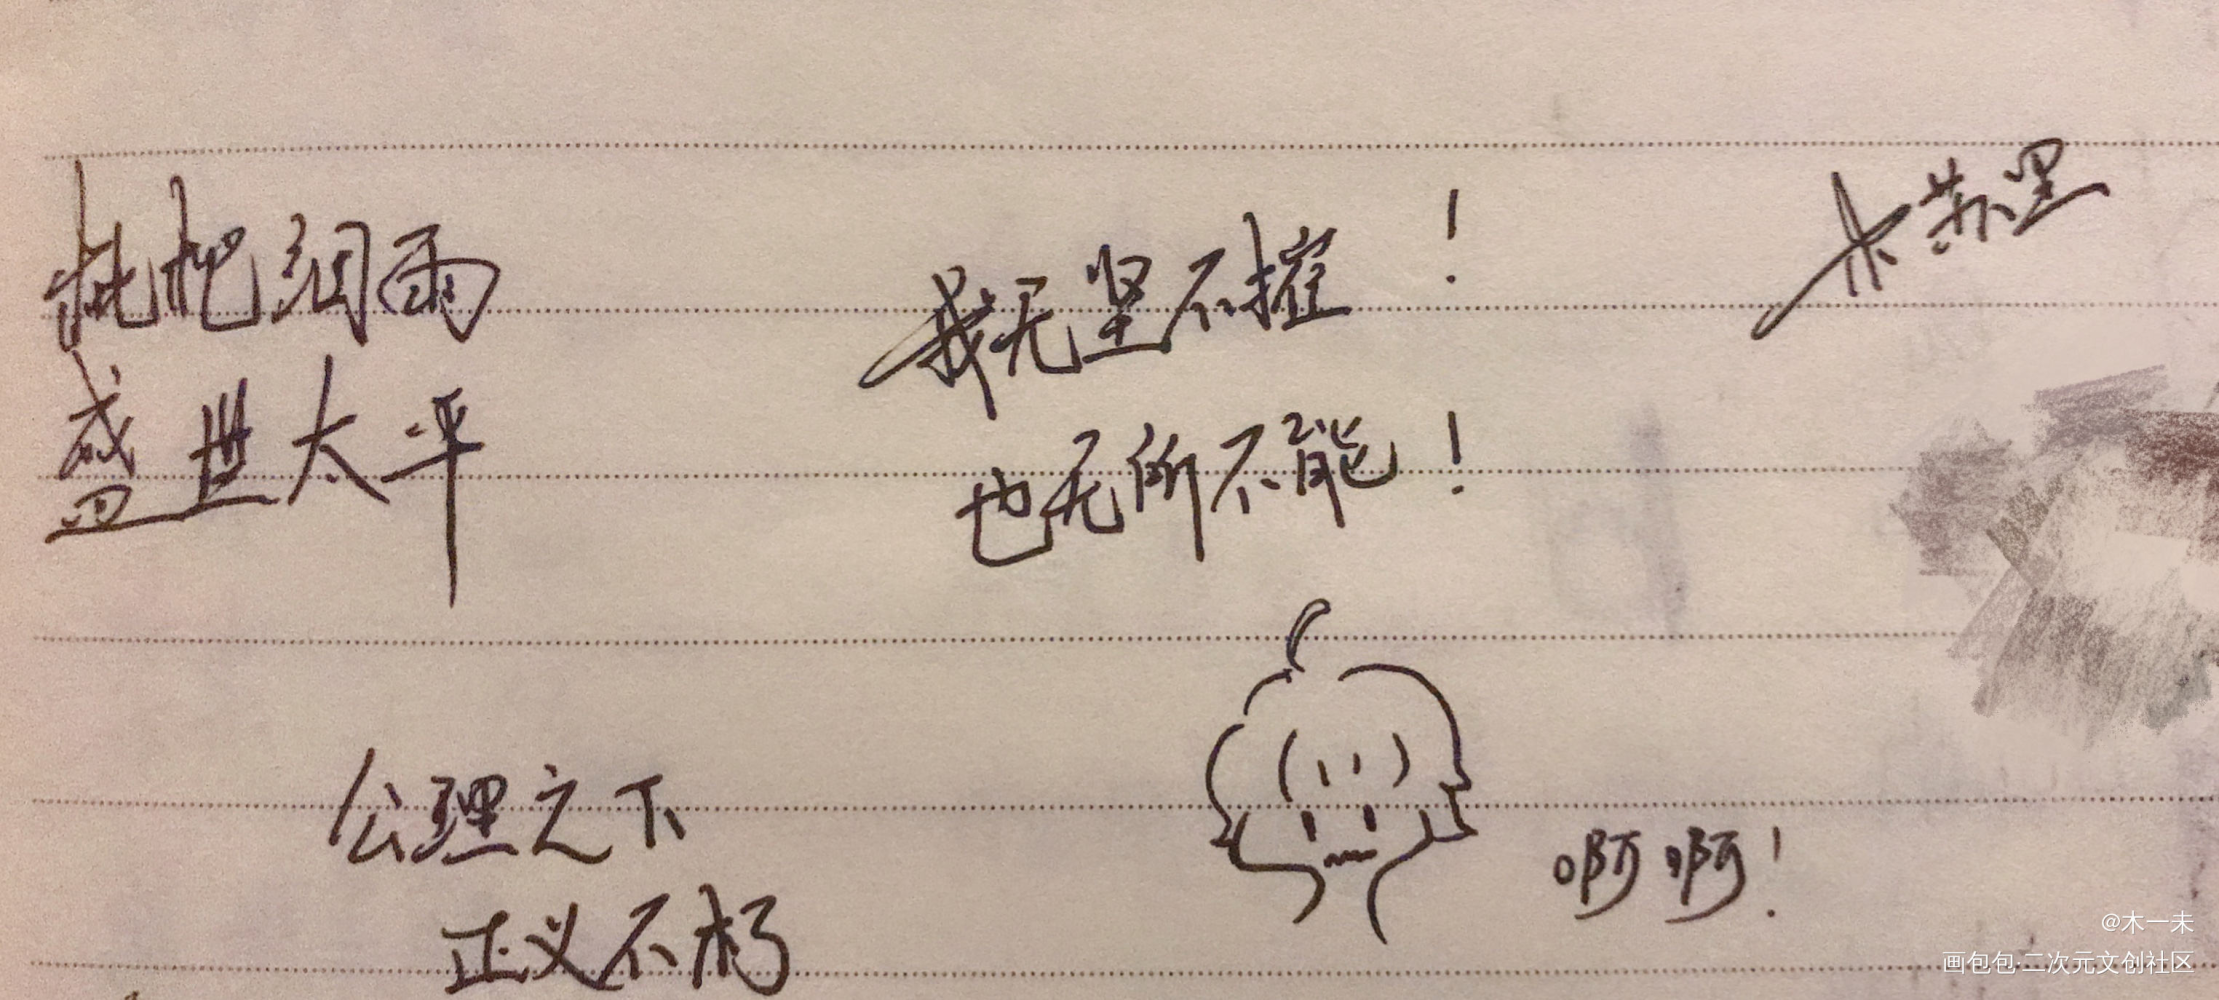 枇杷 雨
盛世太平
我无坚不摧！
也无所不能！
木苏里
公理之下
正义不朽
啊啊！
@木一未
画包包·二次元文创社区